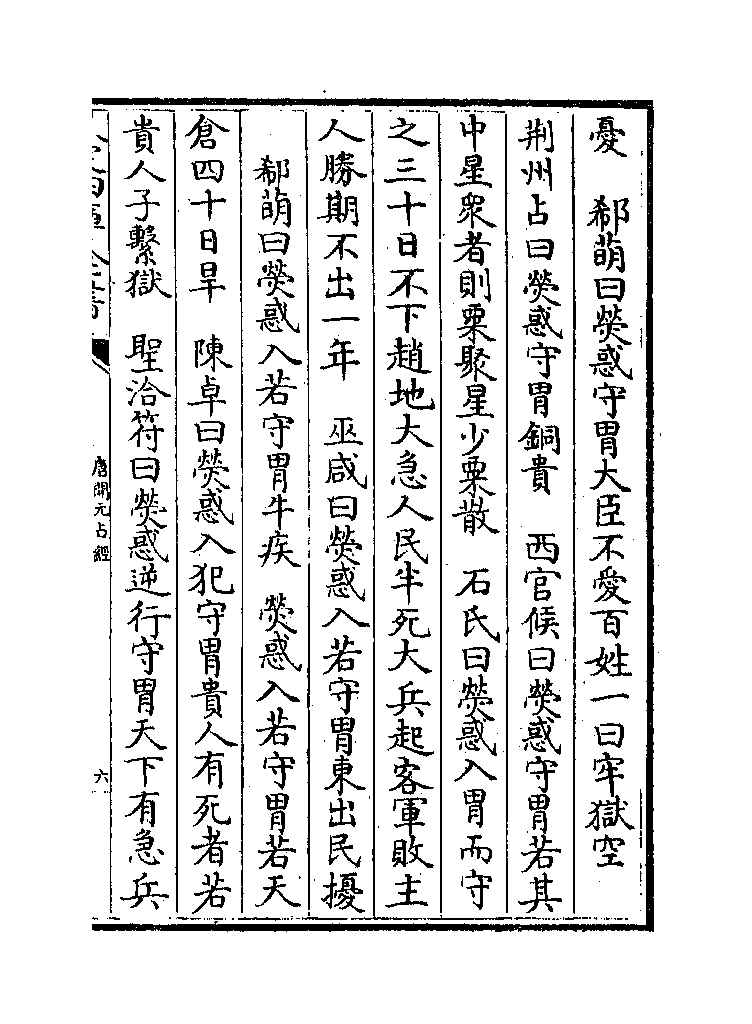 憂　郗萌曰熒惑守胃大臣不愛百姓一曰牢獄空
荆州占曰熒惑守胃銅貴　西官候曰熒惑守胃若其
中星衆者則粟聚星少粟散　石氏曰熒惑入胃而守
之三十日不下趙地大急人民半死大兵起客軍敗主
人勝期不出一年　巫咸曰熒惑入若守胃東出民擾
郗萌曰熒惑入若守胃牛疾　熒惑入若守胃若天
倉四十日旱　陳卓曰熒惑入犯守胃貴人有死者若
貴人子繫獄　聖洽符曰熒惑逆行守胃天下有急兵
唐開元占經
六